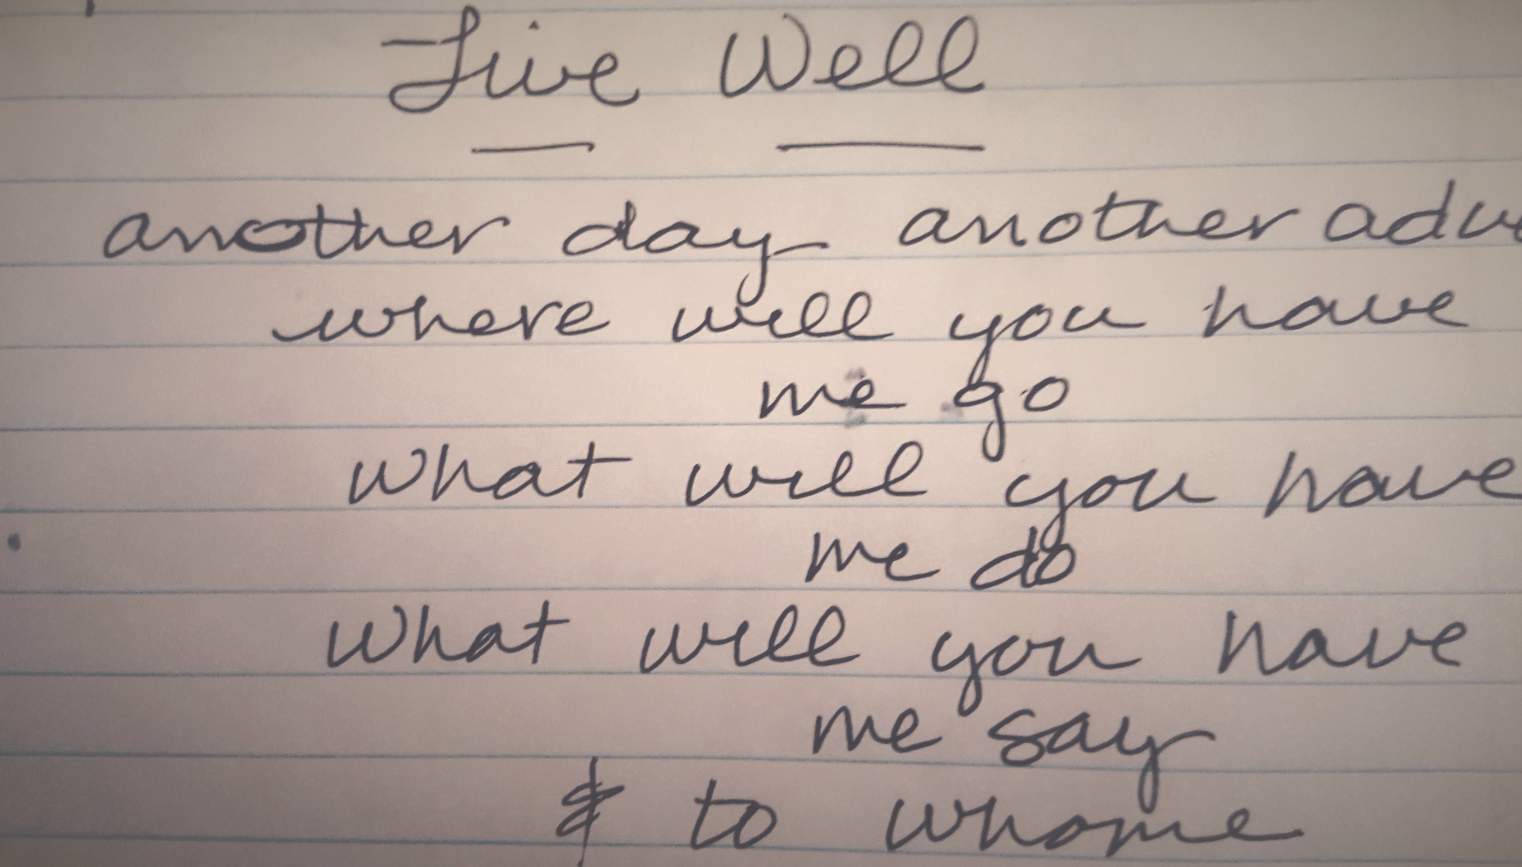 Live Well
another day another adv
where will you have
me go
what will you have
me do
What will you have
me say
& to whome